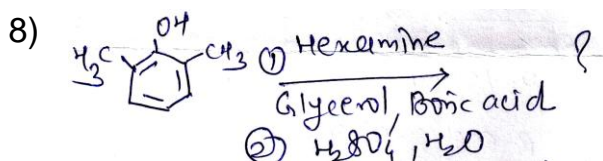 8)
OH
H3C CH3 ① Hexamine ?
Glycerol, Boric acid
② H2SO4, H2O